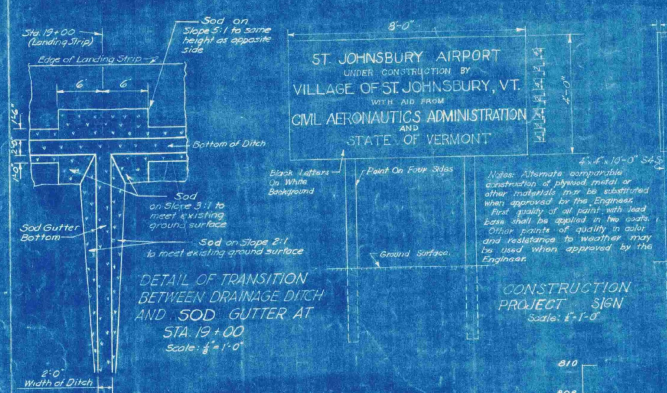 Sta. 19+00
(Landing Strip)
Sod on
Slope 5:1 to same
height as opposite
side
Edge of Landing Strip
6' 6'
Bottom of Ditch
Sod
on Slope 3:1 to
meet existing
ground surface
Sod Gutter
Bottom
Sod on Slope 2:1
to meet existing ground surface
DETAIL OF TRANSITION
BETWEEN DRAINAGE DITCH
AND SOD GUTTER AT
STA. 19+00
2'-0"
Width of Ditch
8'-0"
4'-0"
ST. JOHNSBURY AIRPORT
UNDER CONSTRUCTION BY
VILLAGE OF ST. JOHNSBURY, VT.
WITH AID FROM
CIVIL AERONAUTICS ADMINISTRATION
AND
STATE OF VERMONT
Black Letters
On White
Background
Paint On Four Sides
4"x4"x10'-0" S4S
Ground Surface
Notes: Alternate comparable
construction of plywood, metal or
other materials may be substituted
when approved by the Engineer.
First quality of oil paint with lead
base shall be applied in two coats.
Other paints of quality in color
and resistance to weather may
be used when approved by the
Engineer.
CONSTRUCTION
PROJECT SIGN
810